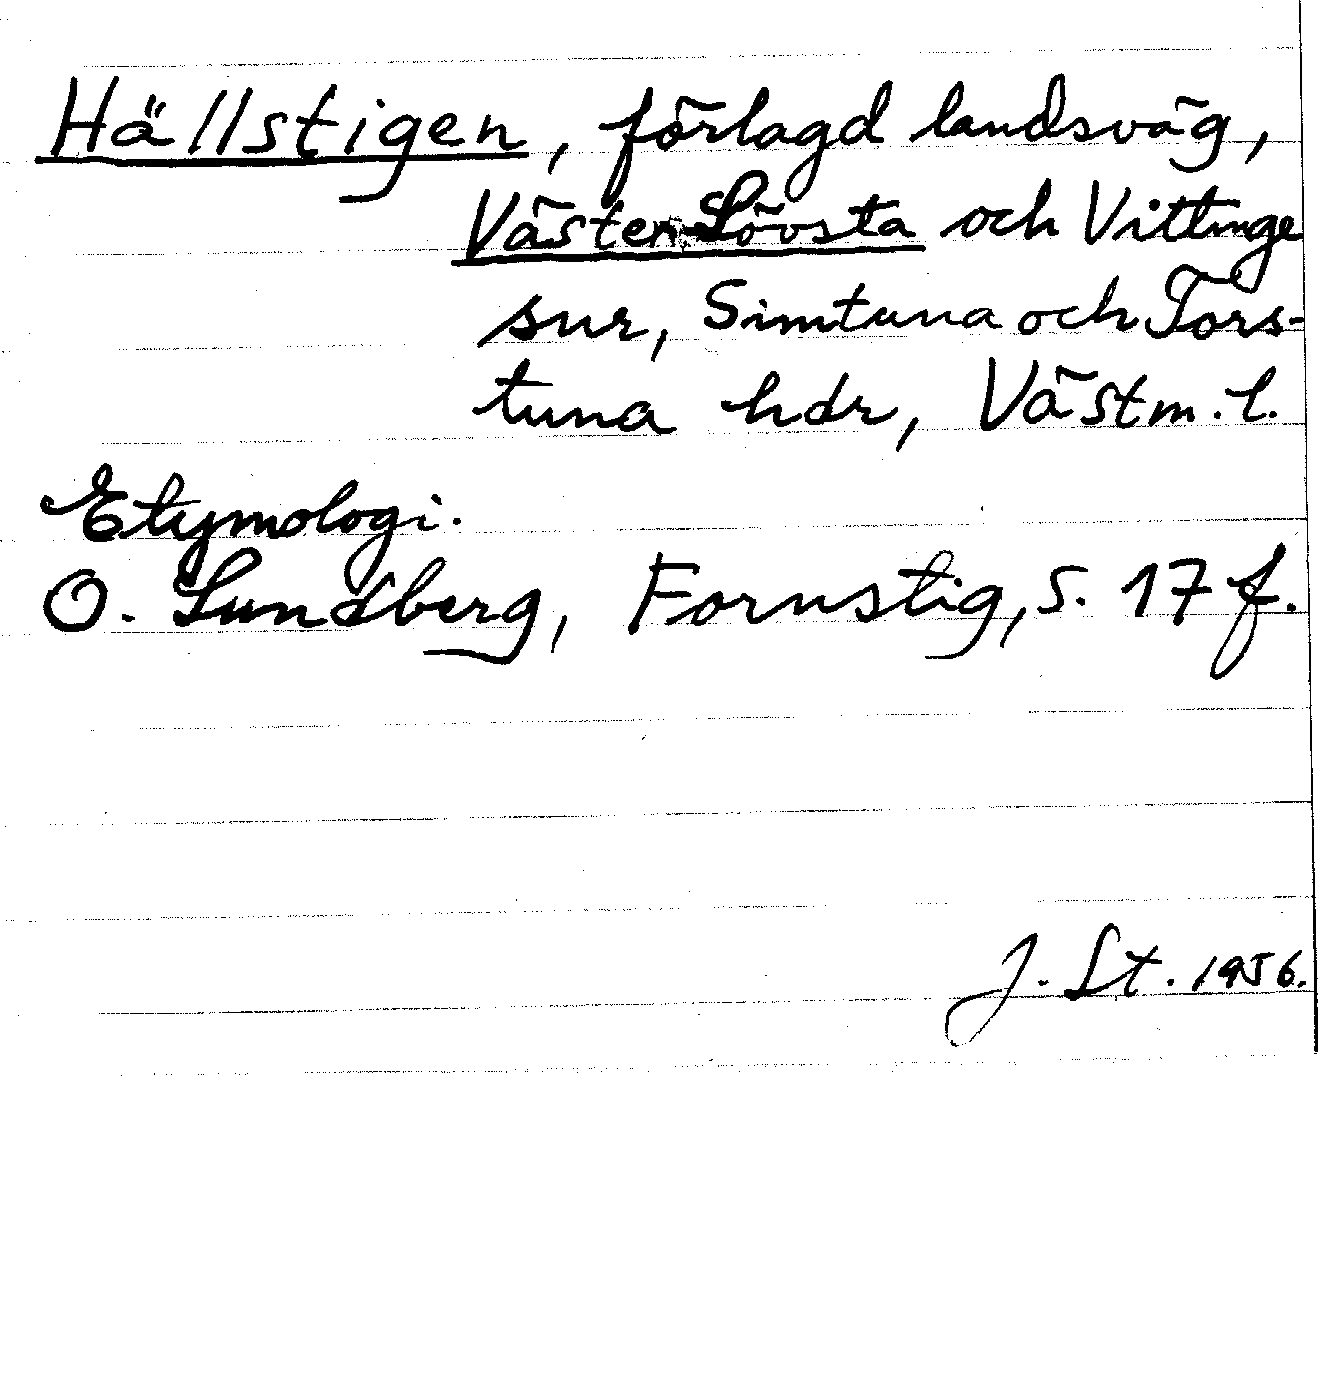 Hällstigen, förlagd landsväg,
Väster-Lövsta och Vittinge
snr, Simtuna och Tors-
tuna hdr, Västm. l.
Etymologi.
O. Lundberg, Fornstig, s. 17 f.
J. St. 1956.